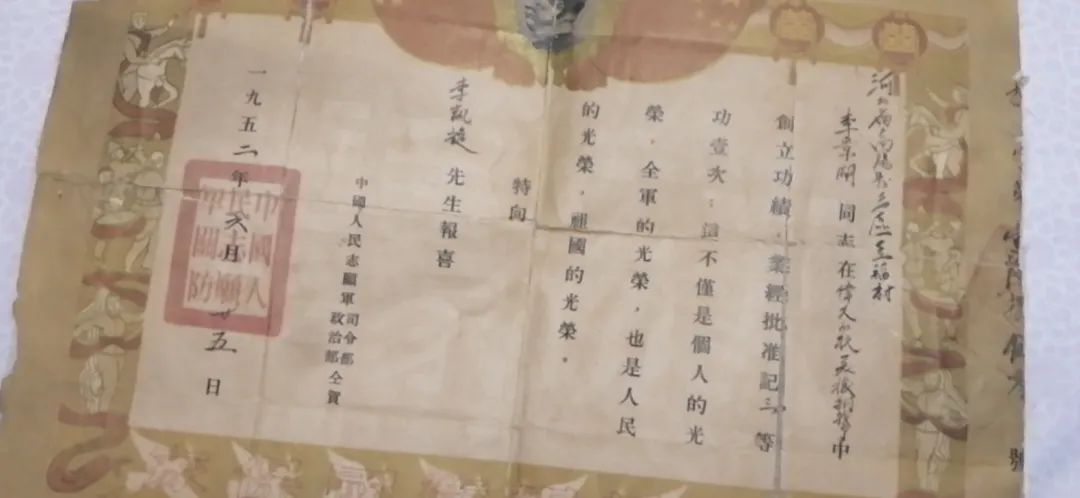 李景開同志在偉大的抗美援朝戰爭中
創立功績，業經批准記三等
功壹次；這不僅是個人的光
榮，全軍的光榮，也是人民
的光榮，祖國的光榮。
特向
李凱旋先生報喜
中國人民志願軍司令部
政治部仝賀
一九五二年六月廿五日
中國人
民志願
軍關防